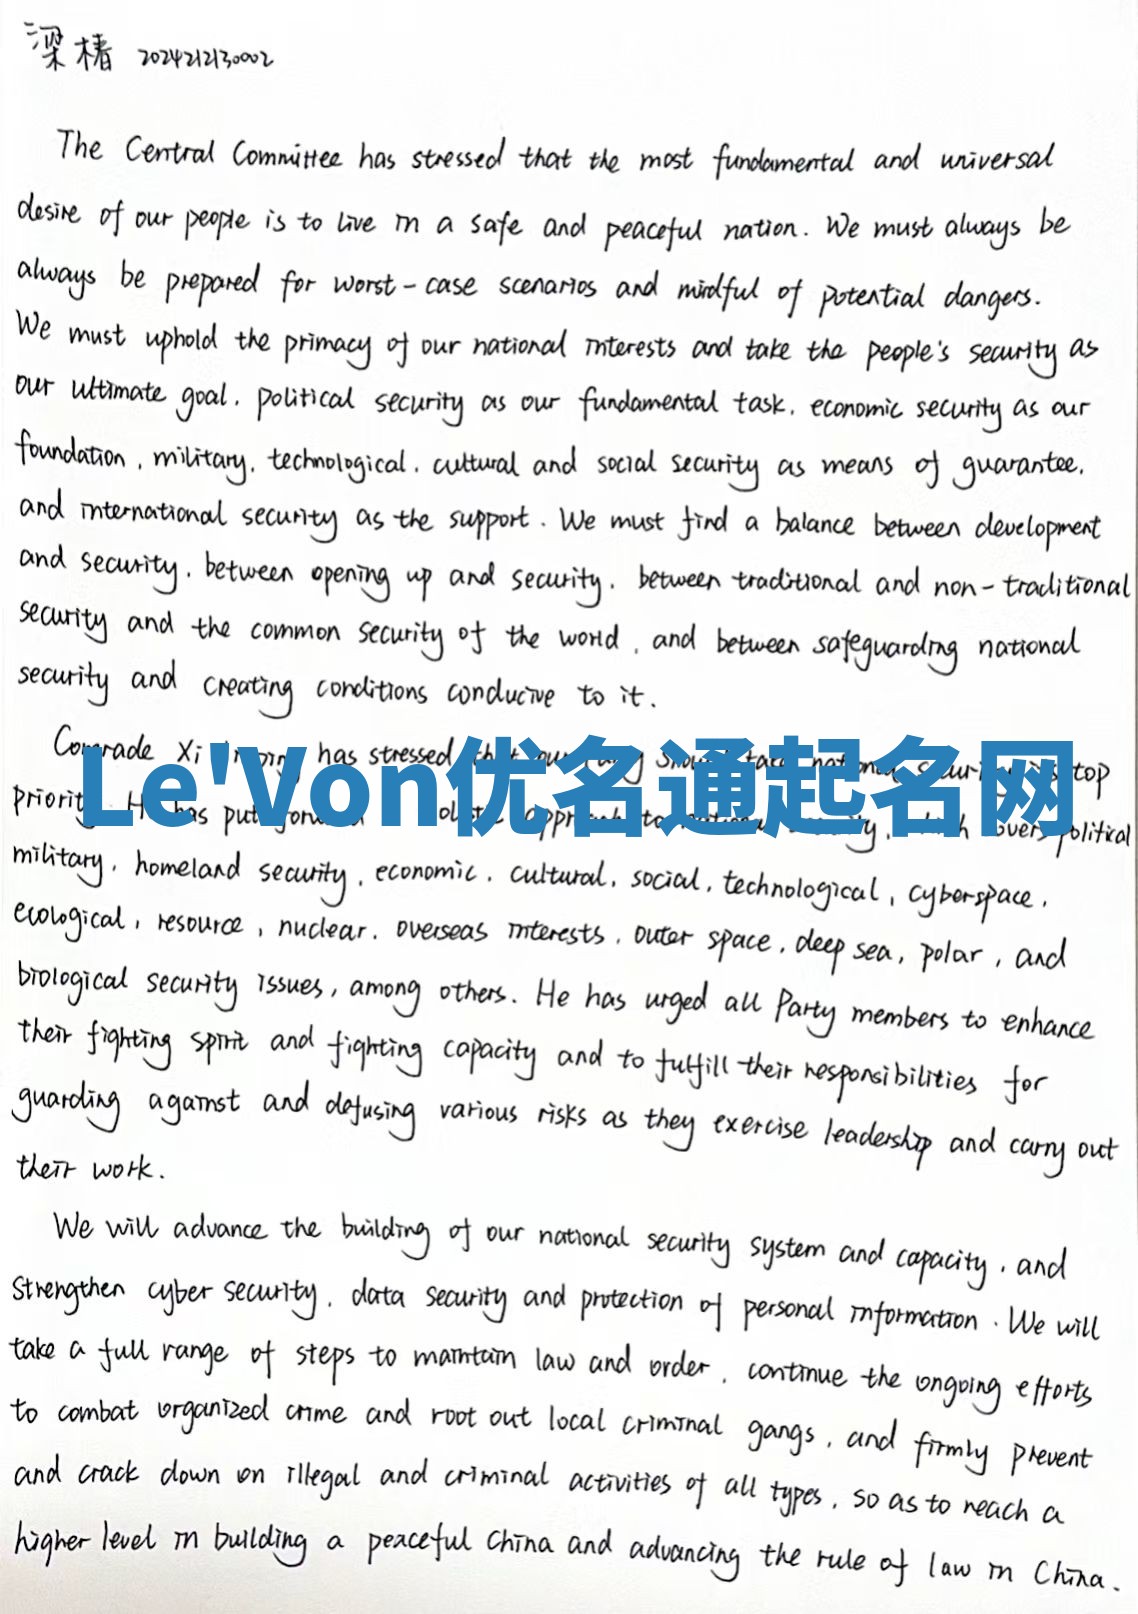 梁椿 2024212130002
The Central Committee has stressed that the most fundamental and universal
desire of our people is to live in a safe and peaceful nation. We must always be
always be prepared for worst-case scenarios and mindful of potential dangers.
We must uphold the primacy of our national interests and take the people's security as
our ultimate goal, political security as our fundamental task, economic security as our
foundation, military, technological, cultural and social security as means of guarantee,
and international security as the support. We must find a balance between development
and security, between opening up and security, between traditional and non-traditional
security and the common security of the world, and between safeguarding national
security and creating conditions conducive to it.
Comrade Xi has stressed top
Le'Von优名通起名网
priority has put political
military, homeland security, economic, cultural, social, technological, cyberspace,
ecological, resource, nuclear, overseas interests, outer space, deep sea, polar, and
biological security issues, among others. He has urged all Party members to enhance
their fighting spirit and fighting capacity and to fulfill their responsibilities for
guarding against and defusing various risks as they exercise leadership and carry out
their work.
We will advance the building of our national security system and capacity, and
strengthen cyber security, data security and protection of personal information. We will
take a full range of steps to maintain law and order, continue the ongoing efforts
to combat organized crime and root out local criminal gangs, and firmly prevent
and crack down on illegal and criminal activities of all types, so as to reach a
higher level in building a peaceful China and advancing the rule of law in China.